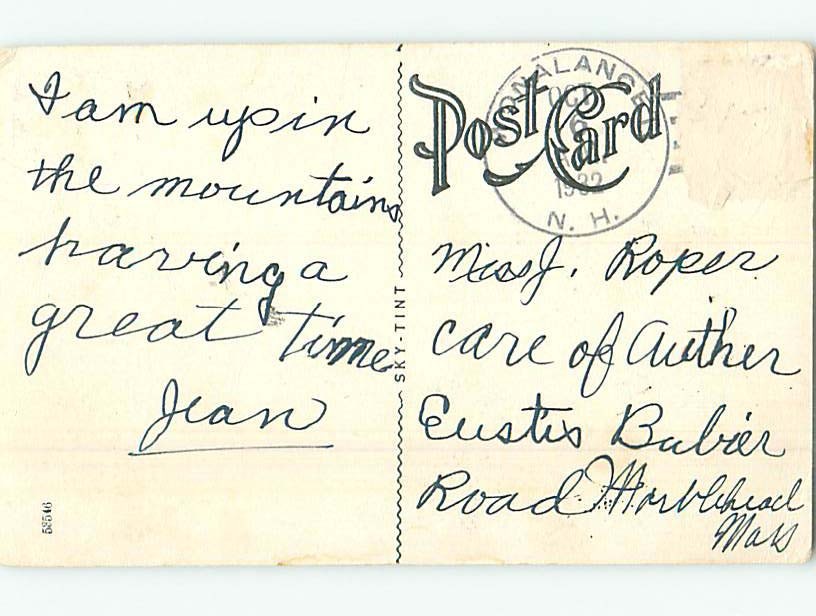 I am up in
the mountains
having a
great time
Jean
58546
SKY-TINT
Post Card
WONALANCET
OCT
6
1932
N. H.
Miss J. Roper
care of Auther
Eustis Bubier
Road Marblehead
Mass